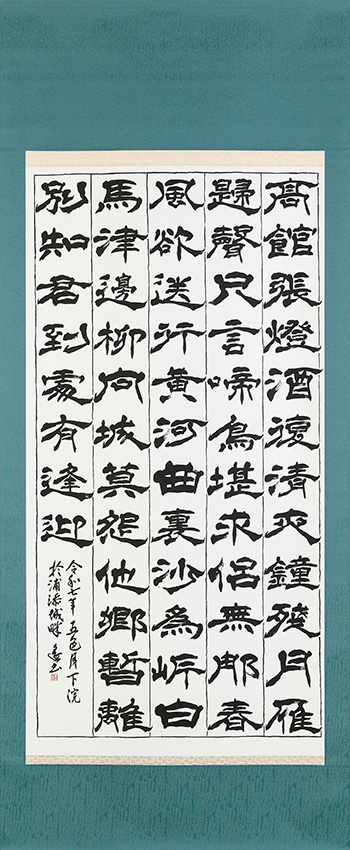 高館張燈酒復清夜鐘殘月雁
歸聲只言啼鳥堪求侶無那春
風欲送行黃河曲裏沙為岸白
馬津邊柳向城莫怨他鄉暫離
別知君到處有逢迎
令和七年 五色月下浣
於浦添城畔 書